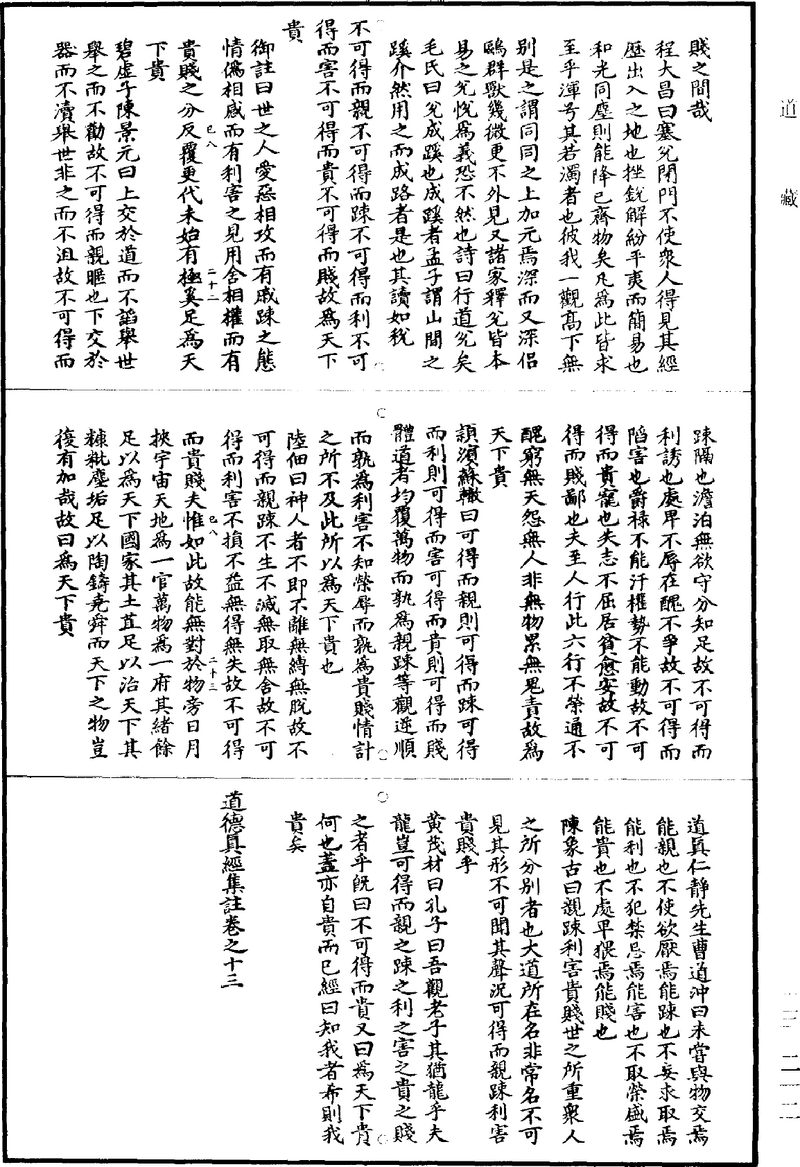 道藏
賤之間哉
程大昌曰塞兊閉門不使衆人得見其經
歷出入之地也挫銳解紛平夷而簡易也
和光同塵則能降已齊物矣凡爲此皆求
至乎渾兮其若濁者也彼我一觀高下無
別是之謂同同之上加元焉深而又深侶
鷗群獸幾微更不外見又諸家釋兊皆本
易之兊悅爲義恐不然也詩曰行道兊矣
毛氏曰兊成蹊也成蹊者孟子謂山間之
蹊介然用之而成路者是也其讀如稅
不可得而親不可得而踈不可得而利不可
得而害不可得而貴不可得而賤故爲天下
貴
御註曰世之人愛惡相攻而有戚踈之態
情僞相感而有利害之見用舍相權而有
貴賤之分反覆更代未始有極奚足爲天
下貴
碧虛子陳景元曰上交於道而不諂舉世
舉之而不勸故不可得而親暱也下交於
器而不瀆舉世非之而不沮故不可得而
已八
二十二
踈隔也澹泊無欲守分知足故不可得而
利誘也處卑不辱在醜不爭故不可得而
陷害也爵禄不能汙權勢不能動故不可
得而貴寵也失志不屈居貧愈安故不可
得而賤鄙也夫至人行此六行不榮通不
醜窮無天怨無人非無物累無鬼責故爲
天下貴
頴濱蘇轍曰可得而親則可得而踈可得
而利則可得而害可得而貴則可得而賤
體道者均覆萬物而孰爲親踈等觀逆順
而孰爲利害不知榮辱而孰爲貴賤情計
之所不及此所以爲天下貴也
陸佃曰神人者不即不離無縛無脫故不
可得而親踈不生不滅無取無舍故不可
得而利害不損不益無得無失故不可得
已八
二十三
而貴賤夫惟如此故能無對於物旁日月
挾宇宙天地爲一官萬物爲一府其緒餘
足以爲天下國家其土苴足以治天下其
糠粃塵垢足以陶鑄堯舜而天下之物豈
復有加哉故曰爲天下貴
道眞仁靜先生曹道沖曰未嘗與物交焉
能親也不使欲厭焉能踈也不妄求取焉
能利也不犯禁忌焉能害也不取榮盛焉
能貴也不處卑猥焉能賤也
陳象古曰親踈利害貴賤世之所重衆人
之所分別者也大道所在名非常名不可
見其形不可聞其聲況可得而親踈利害
貴賤乎
黄茂材曰孔子曰吾觀老子其猶龍乎夫
龍豈可得而親之踈之利之害之貴之賤
之者乎旣曰不可得而貴又曰爲天下貴
何也蓋亦自貴而已經曰知我者希則我
貴矣
道德眞經集註卷之十三